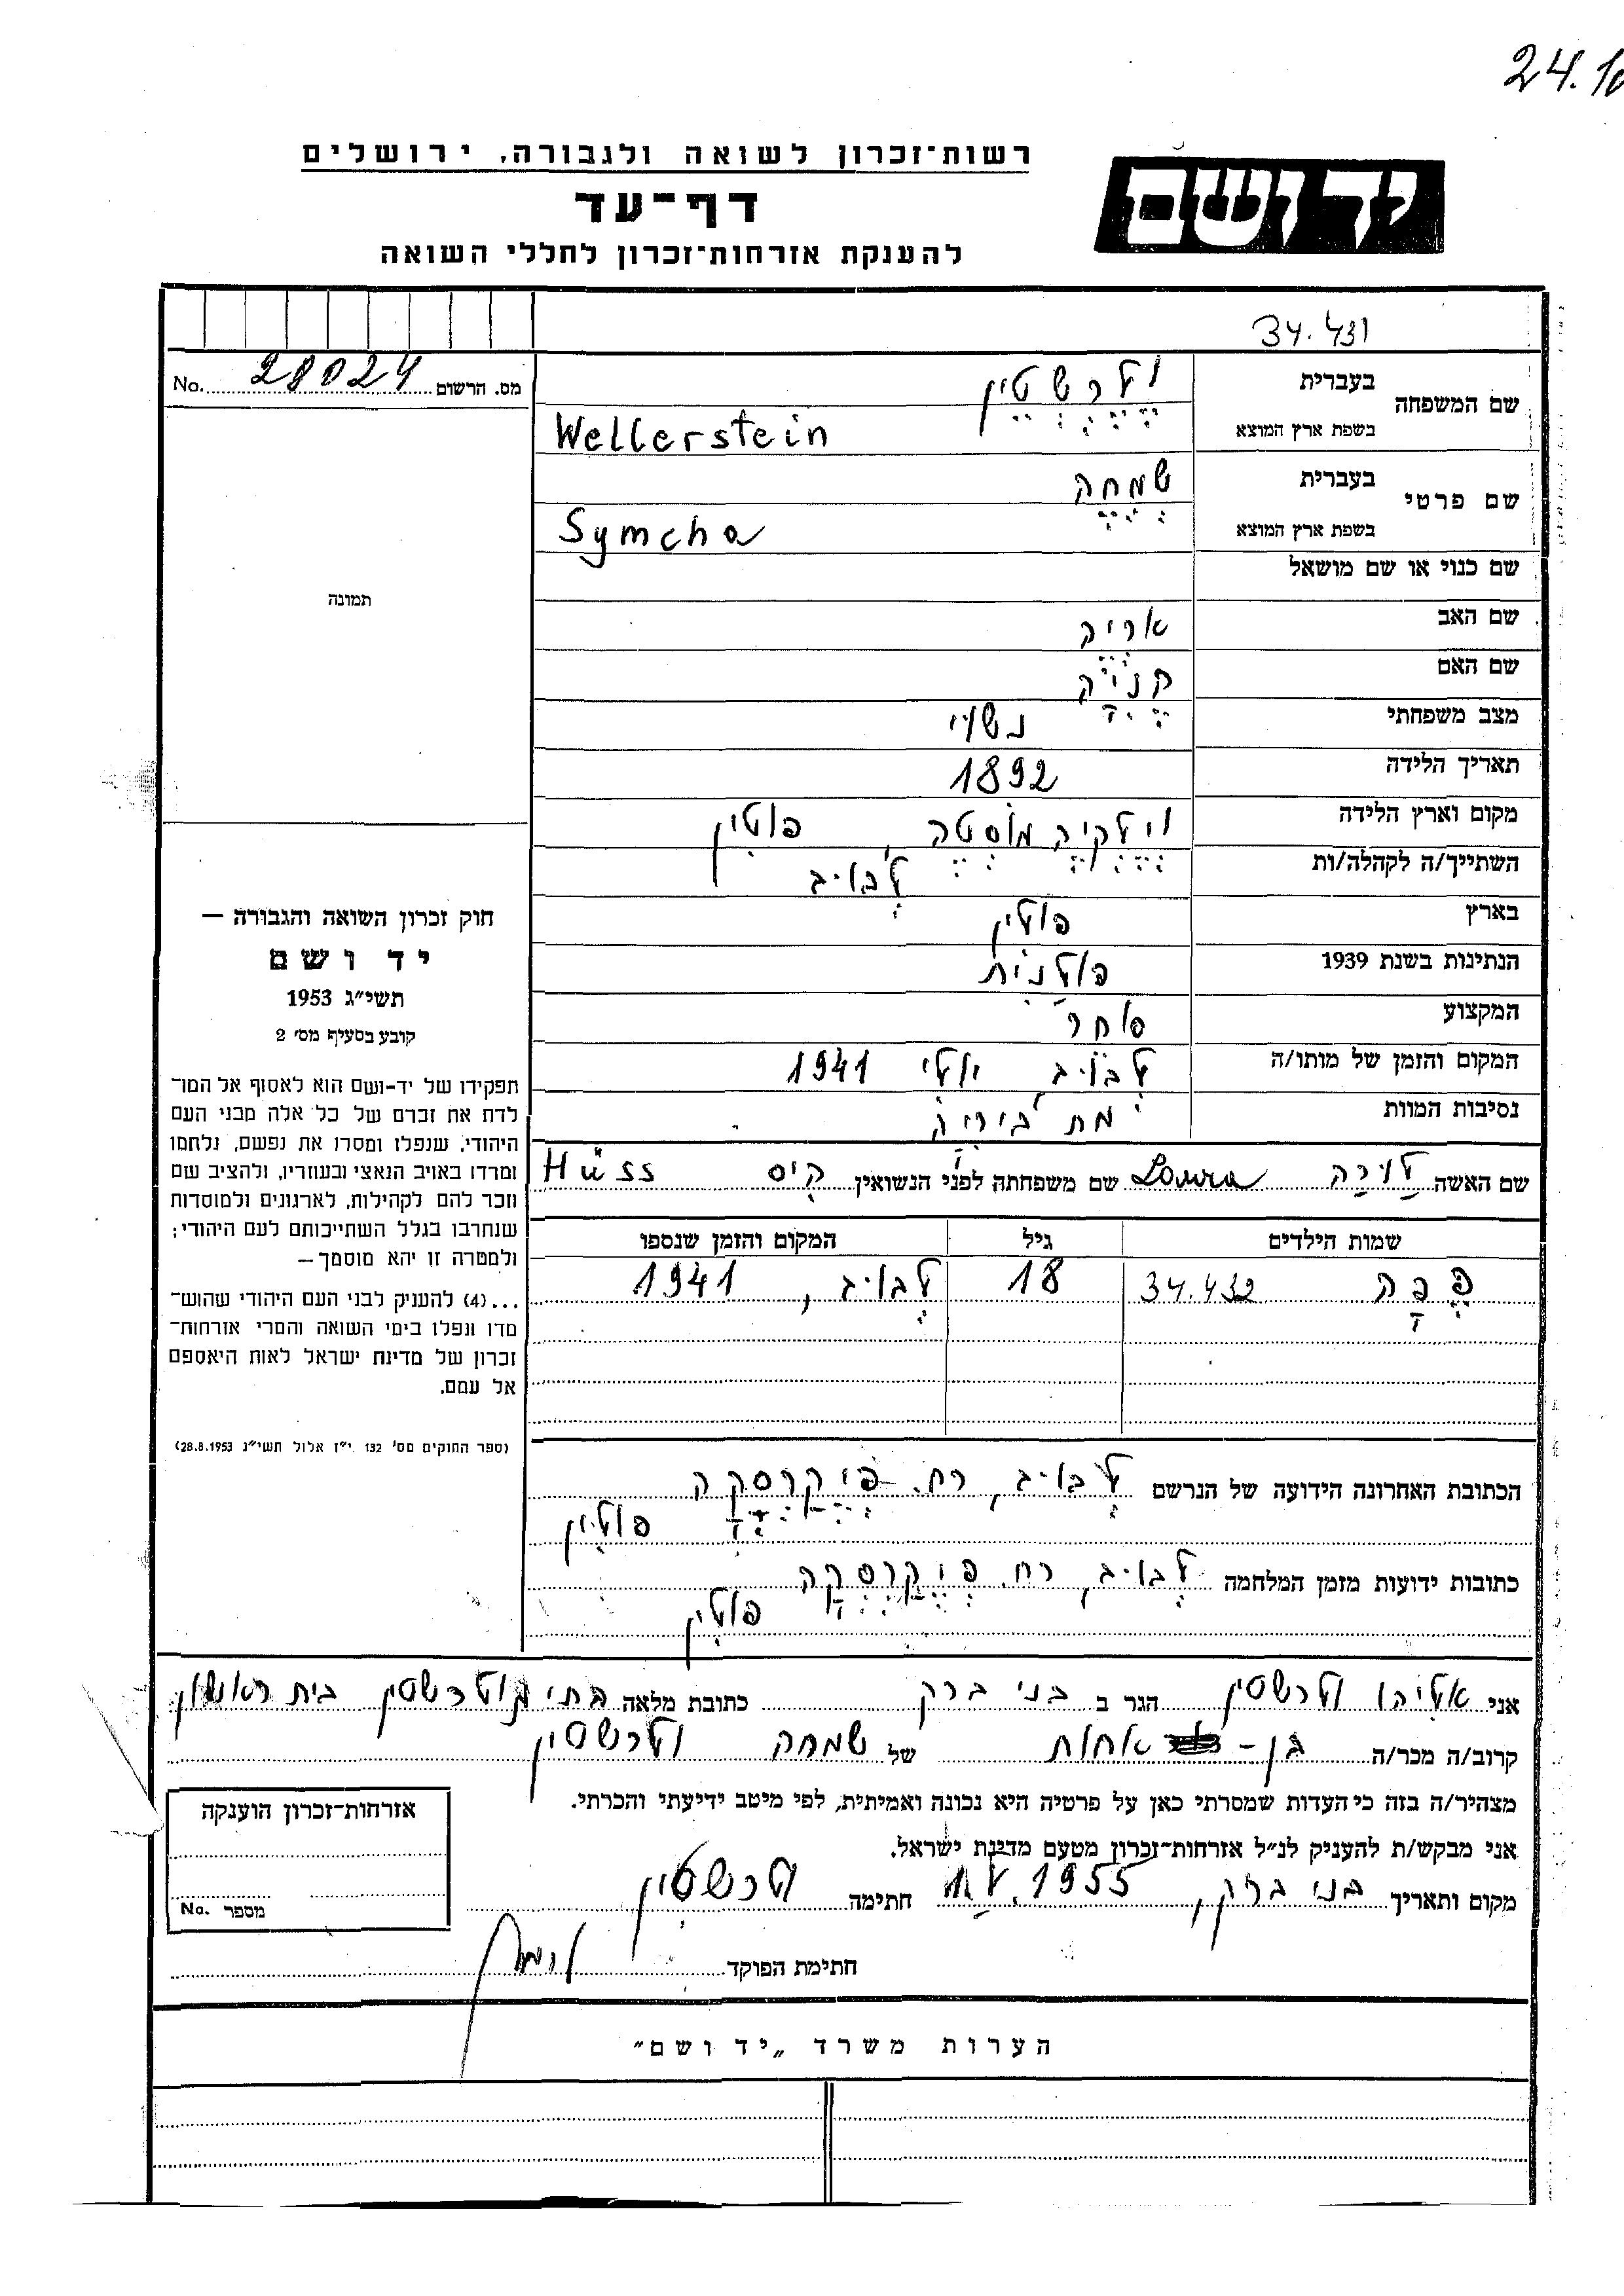 24.10
רשות־זכרון לשואה ולגבורה, ירושלים
יד ושם
דף־עד
להענקת אזרחות־זכרון לחללי השואה
34.431
מס. הרשום 28024 No.
שם המשפחה בעברית ולרשטיין
בשפת ארץ המוצא Wellerstein
שם פרטי בעברית שמחה
בשפת ארץ המוצא Symcha
תמונה
שם כנוי או שם מושאל
שם האב אריה
שם האם
מצב משפחתי נשוי
תאריך הלידה 1892
מקום וארץ הלידה וילקיה מוסטה, פולין
השתייך/ה לקהלה/ות לבוב
בארץ פולין
הנתינות בשנת 1939 פולנית
המקצוע סוחר
המקום והזמן של מותו/ה לבוב יולי 1941
נסיבות המוות מת
שם האשה לורה Laura שם משפחתה לפני הנשואין היס Hüss
שמות הילדים גיל המקום והזמן שנספו
פפה 34.432 18 לבוב, 1941
הכתובת האחרונה הידועה של הנרשם לבוב, רח. פיקרסקה
פולין
כתובות ידועות מזמן המלחמה לבוב, רח. פיקרסקה
פולין
חוק זכרון השואה והגבורה —
יד ושם
תשי״ג 1953
קובע בסעיף מס׳ 2
תפקידו של יד־ושם הוא לאסוף אל המו־
לדת את זכרם של כל אלה מבני העם
היהודי, שנפלו ומסרו את נפשם, נלחמו
ומרדו באויב הנאצי ובעוזריו, ולהציב שם
וזכר להם לקהילות, לארגונים ולמוסדות
שנחרבו בגלל השתייכותם לעם היהודי;
ולמטרה זו יהא מוסמך —
...(4) להעניק לבני העם היהודי שהוש־
מדו ונפלו בימי השואה והמרי אזרחות־
זכרון של מדינת ישראל לאות היאספם
אל עמם.
(ספר החוקים מס׳ 132 י״ז אלול תשי״ג 28.8.1953)
אני אליהו ולרשטין הגר ב בני ברק כתובת מלאה בתי ולרשטין בית ראשון
קרוב/ה מכר/ה בן- אחות של שמחה ולרשטין
מצהיר/ה בזה כי העדות שמסרתי כאן על פרטיה היא נכונה ואמיתית, לפי מיטב ידיעתי והכרתי.
אני מבקש/ת להעניק לנ״ל אזרחות־זכרון מטעם מדינת ישראל.
מקום ותאריך בני ברק, 1955 חתימה ולרשטין
חתימת הפוקד
אזרחות־זכרון הוענקה
מספר No.
הערות משרד „יד ושם״